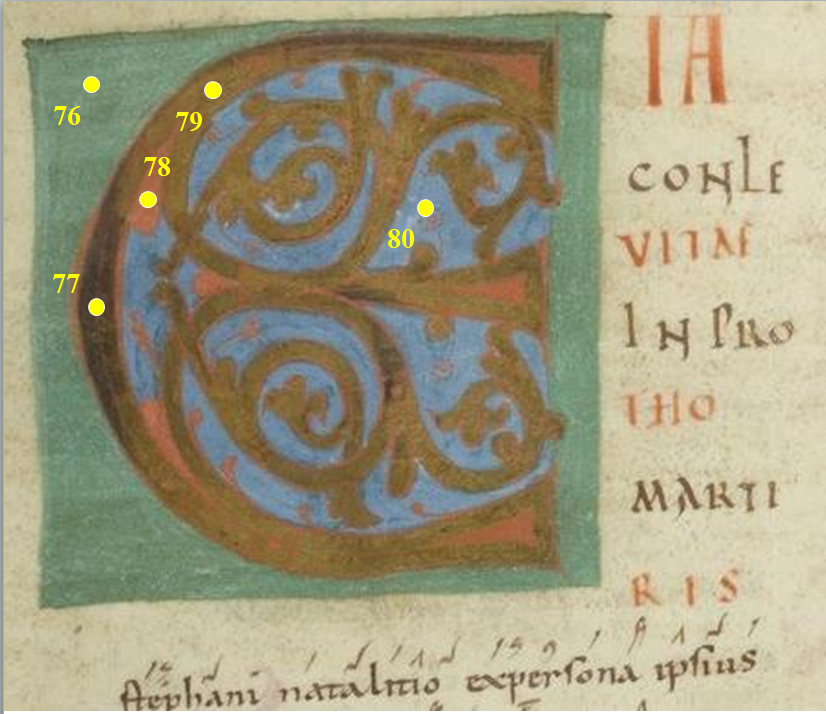 E IA
CONLE
VITAE
IN PRO
THO
MARTI
RIS
stephani natalitio expersona ipsius
76
79
78
80
77